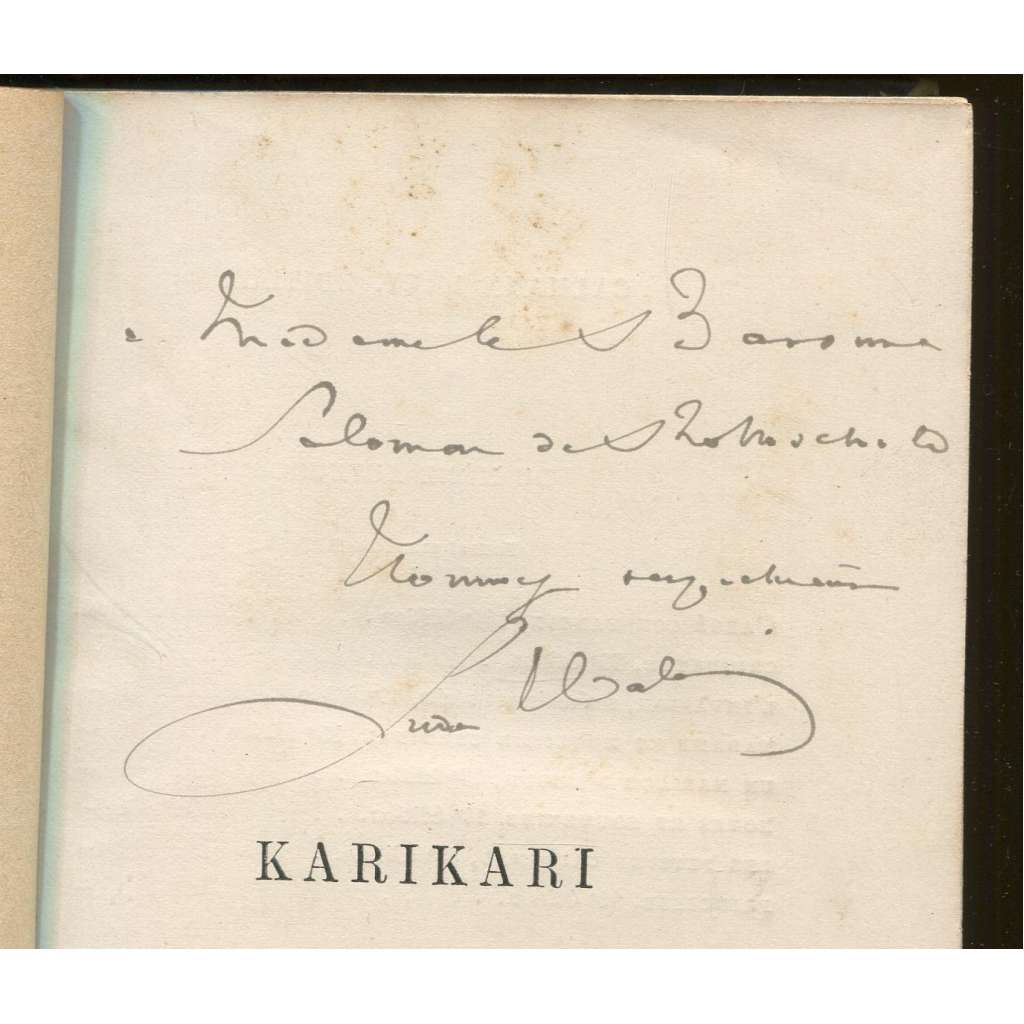 à Madame la Baronne
Salomon de Rothschild
Hommage respectueux
Ludovic Halévy
KARIKARI